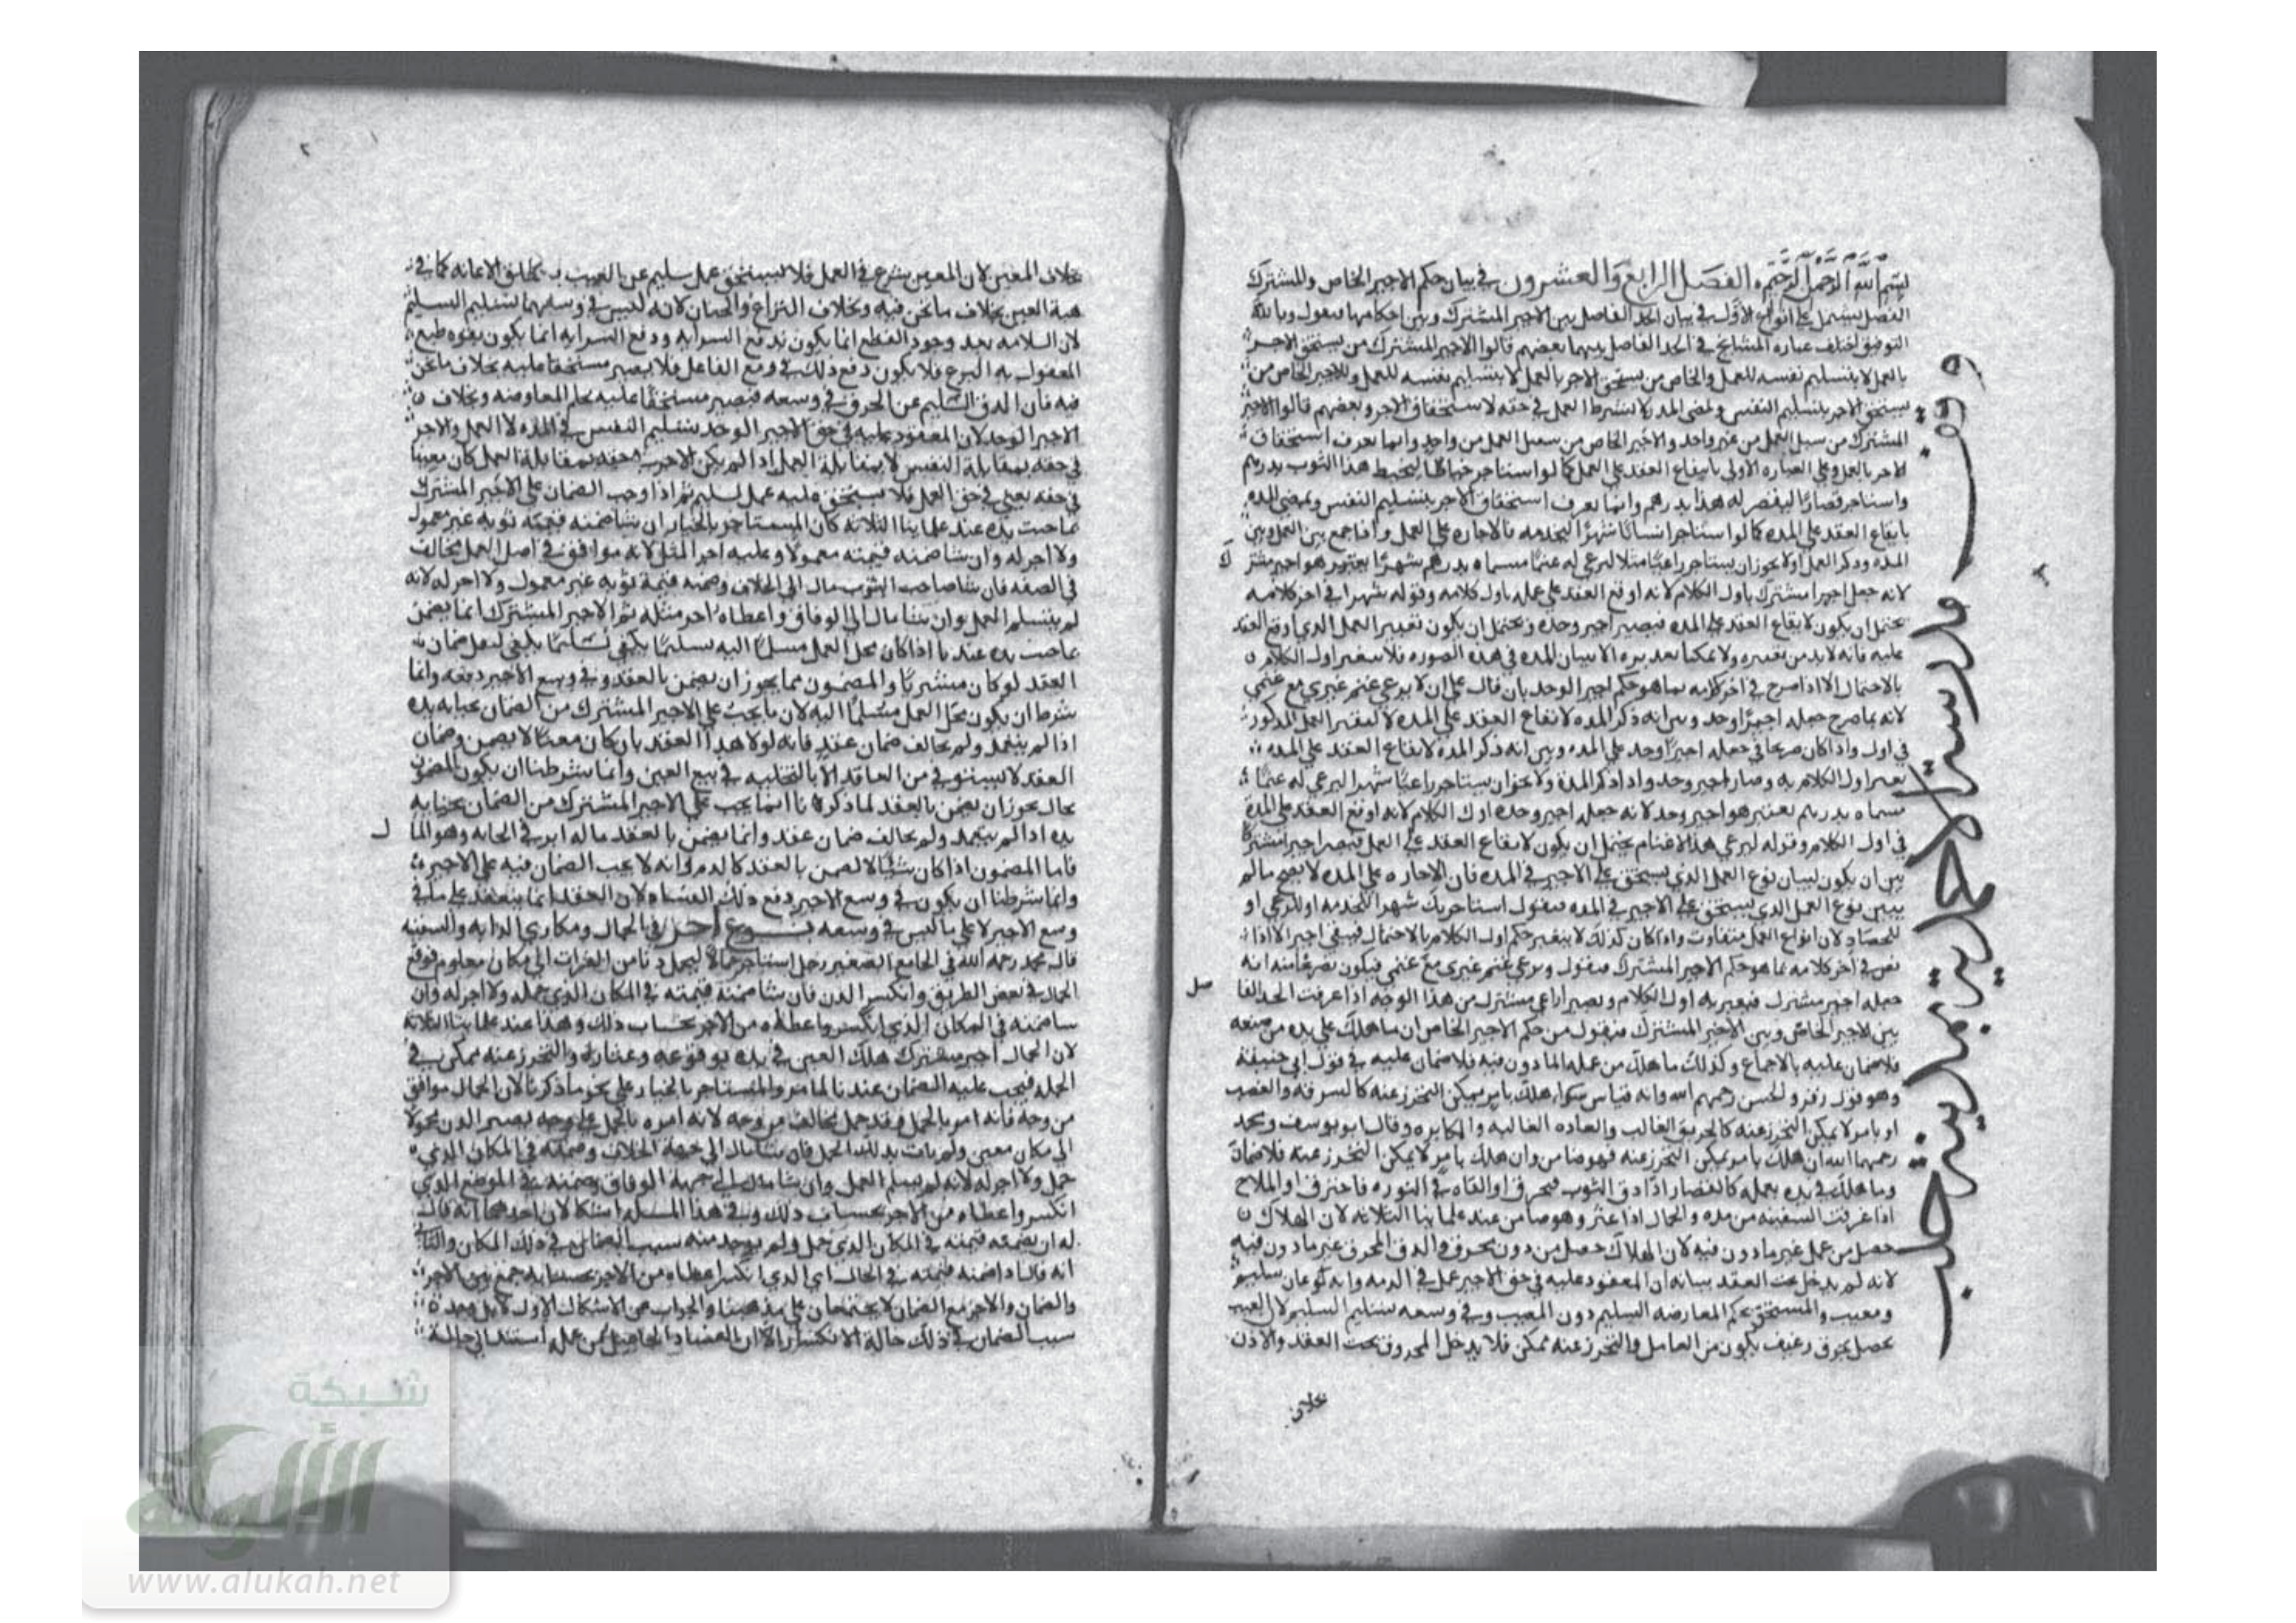 بسم الله الرحمن الرحيم الفصل الرابع والعشرون في بيان حكم الاجير الخاص والمشترك
الفصل يشتمل على انواع الاول في بيان الحد الفاصل بين الاجير المشترك وبين احكامها فنقول وبالله
التوفيق اختلف عبارة المشايخ في الحد الفاصل بينهما بعضهم قالوا الاجير المشترك من يستحق الاجر
بالعمل لا بتسليم نفسه للعمل والخاص من يستحق الاجر بالعمل لا بتسليم نفسه للعمل وللاجير الخاص من
يستحق الاجر بتسليم النفس ولمضى المدة لا يشترط العمل في حقه لاستحقاق الاجر وبعضهم قالوا الاجير
المشترك من سبل العمل من غير واحد والاجير الخاص من سعل العمل من واحد وانما يعرف استحقاق
الاجر بالعمل وعلى العبارة الاولى بايقاع العقد على العمل كما لو استاجر خياطا ليخيط هذا الثوب بدرهم
واستاجر قصارا ليقصر له هذا بدرهم وانما يعرف استحقاق الاجر بتسليم النفس وبمضى المدة
بايقاع العقد على المدة كما لو استاجر انسانا شهرا ليخدمه فالاجارة على العمل واذا جمع بين العمل وبين
المدة وذكر العمل اولا يجوز ان يستاجر راعيا مثلا ليرعى له غنما مسماه بدرهم شهرا يعتبر هو اجير مشترك
لانه جعل اجيرا مشترك باول الكلام لانه اوقع العقد على عمله باول كلامه وقوله شهرا في اخر كلامه
يحتمل ان يكون لايقاع العقد على المدة فيصير اجير وحده ويحتمل ان يكون تقدير العمل الذي اوقع العقد
عليه فانه لابد من تقديره ولا يمكنا تقديره الا ببيان المدة في هذه الصورة فلا يتغير اول الكلام
بالاحتمال الا اذا صرح في اخر كلامه بما هو حكم اجير الوحد بان قال على ان لا يرعى غنم غيري مع غنمي
لانه بما صرح جعله اجيرا وحد وبين انه ذكر المدة لايقاع العقد على المدة لا لتقدير العمل المذكور
في اول واذا كان صريحا في جعله اجيرا وحد على المدة وبين انه ذكر المدة لايقاع العقد على المدة
تغير اول الكلام به وصار اجير وحد واذا ذكر المدة ولا يجوز ان يستاجر راعيا شهرا ليرعى له غنما
مسماه بدرهم يعتبر هو اجير وحد لانه جعله اجير وحده اول الكلام لانه اوقع العقد على المدة
في اول الكلام وقوله ليرعى هذه الاغنام يحتمل ان يكون لايقاع العقد على العمل فيصير اجيرا مشتركا
بين ان يكون لبيان نوع العمل الذي يستحق على الاجير في المدة فان الاجارة على المدة لا تصح مالم
يبين نوع العمل الذي يستحق على الاجير في المدة فنقول استاجرتك شهرا للخدمة او للرعي او
للحصاد لان انواع العمل متفاوت واذا كان كذلك لا يتغير حكم اول الكلام بالاحتمال فيبقى اجيرا الا اذا
نص في اخر كلامه بما هو حكم الاجير المشترك فنقول ويرعى غنم غيري مع غنمي فيكون تصريحا منه انه
جعله اجير مشترك فيغير به اول الكلام ويصير الراعي مشترك من هذا الوجه اذا عرفت الحد الفاصل
بين الاجير الخاص وبين الاجير المشترك فنقول من حكم الاجير الخاص ان ما هلك على يده من صنعه
فلا ضمان عليه بالاجماع وكذلك ما هلك من عمله الماذون فيه فلا ضمان عليه في قول ابي حنيفة
وهو قول زفر والحسن رحمهم الله وانه قياس سواء هلك بامر يمكن التحرز عنه كالسرقة والغصب
او بامر لا يمكن التحرز عنه كالحريق الغالب والعادة الغالبة والمكابرة وقال ابو يوسف ومحمد
رحمهما الله ان هلك بامر يمكن التحرز عنه فهو ضامن وان هلك بامر لا يمكن التحرز عنه فلا ضمان
وما هلك في يده بعمله كالقصار اذا دق الثوب فتحرق او القاه في النورة فاحترق او الملاح
اذا غرقت السفينة من مده والحمال اذا عثر وهو ضامن عند علمائنا الثلاثة لان الهلاك
حصل من عمل غير ماذون فيه لان الهلاك حصل من دون محرق والدق المحرق غير ماذون فيه
لانه لم يدخل تحت العقد بيانه ان المعقود عليه في حق الاجير عمل في الذمة وانه نوعان سليم
ومعيب والمستحق بحكم المعاوضة السليم دون المعيب وفي وسعه تسليم السليم لان العيب
يحصل بحرق وعنف يكون من العامل والتحرز عنه ممكن فلا يدخل المحروق تحت العقد والاذن
بخلاف
وقف مدرسة الاحمدية بمدينة حلب
بخلاف المعين لان المعين شرع في العمل فلا يستحق عمل سليم عن العيب بمطلق الاعانة كما في
هبة العين بخلاف ما نحن فيه وبخلاف النزاع والختان لانه ليس في وسعهما تسليم السليم
لان السلامة بعد وجود القطع انما يكون بدفع السراية ودفع السراية انما يكون بقوة طبع
المفعول به فلا يكون دفع ذلك في وسع الفاعل فلا يصير مستحقا عليه بخلاف ما نحن
فيه فان الدق السليم عن الحرق في وسعه فيصير مستحقا عليه بحكم المعاوضة وبخلاف
الاجير الوحد لان المعقود عليه في حق الاجير الوحد تسليم النفس في المدة لا العمل والاجر
في حقه بمقابلة النفس لا بمقابلة العمل اذا لم يكن الاجر في حقه بمقابلة العمل كان معينا
في حقه يعني في حق العمل فلا يستحق عليه عمل سليم ثم اذا وجب الضمان على الاجير المشترك
بما جنت يده عند علمائنا الثلاثة كان المستاجر بالخيار ان شا ضمنه قيمته ثوبه غير معمول
ولا اجر له وان شا ضمنه قيمته معمولا وعليه اجر المثل لانه موافق في اصل العمل مخالف
في الصفة فان شا صاحب الثوب مال الى الخلاف وضمنه قيمة ثوبه غير معمول ولا اجر له لانه
لم يتسلم العمل وان شا مال الى الوفاق واعطاه اجر مثله ثم الاجير المشترك انما يضمن
بما جنت يده عندنا اذا كان محل العمل مسلما اليه تسليما يكفي لنقل ضمان
العقد لو كان مشتريا والمضمون مما يجوز ان يضمن بالعقد وفي وسع الاجير دفعه وانما
شرط ان يكون محل العمل مسلما اليه لان ما يجب على الاجير المشترك من الضمان بجناية يده
اذا لم يتعمد ولم يخالف ضمان عقد فانه لولا هذا العقد بان كان معينا لا يضمن وضمان
العقد لا يستوفي من العاقد الا بالتخلية في بيع العين وانما شرطنا ان يكون المضمون
بحال يجوز ان يضمن بالعقد لما ذكرنا ان ما يجب على الاجير المشترك من الضمان بجناية
يده اذا لم يتعمد ولم يخالف ضمان عقد وانما يضمن بالعقد ماله اثر في الجناية وهو المال
فاما المضمون اذا كان شيئا لا يضمن بالعقد كالادمي فانه لا يجب الضمان فيه على الاجير
وانما شرطنا ان يكون في وسع الاجير دفع ذلك الفساد لان العقد انما ينعقد على ما في
وسع الاجير لا على ما ليس في وسعه نوع اخر في الحمال ومكاري الدابة والسفينة
قال محمد رحمه الله في الجامع الصغير رجل استاجر حمالا ليحمل دنا من الفرات الى مكان معلوم فوقع
الحمال في بعض الطريق وانكسر الدن فان شا ضمنه قيمته في المكان الذي حمله ولا اجر له وان
شا ضمنه في المكان الذي انكسر واعطاه من الاجر بحساب ذلك وهذا عند علمائنا الثلاثة
لان الحمال اجير مشترك هلك العين في يده بوقوعه وعثاره والتحرز عنه ممكن في
الجملة فيجب عليه الضمان عندنا لما مر والمستاجر بالخيار على نحو ما ذكرنا لان الحمال موافق
من وجه فانه امر بالحمل وقد حمل مخالف من وجه لانه امره بالحمل على وجه يصير الدن محمولا
الى مكان معين ولم يات بذلك الحمل فان شا مال الى جهة الخلاف وضمنه في المكان الذي
حمل ولا اجر له لانه لم يسلم العمل وان شا مال الى جهة الوفاق وضمنه في الموضع الذي
انكسر واعطاه من الاجر بحساب ذلك وفي هذا المسئلة اشكالان احدهما انه قال
له ان يضمنه قيمته في المكان الذي حمل ولم يوجد منه سبب الضمان في ذلك المكان والثاني
انه قال اذا ضمنه قيمته في الحال اي الذي انكسر اعطاه من الاجر بحسابه جمع بين الاجر
والضمان والاجر مع الضمان لا يجتمعان على مذهبنا والجواب عن الاشكال الاول
سبب الضمان في ذلك حالة الانكسار الا ان الفساد الحاصل من عمله استند الى حالة
شبكة
الألوكة
www.alukah.net